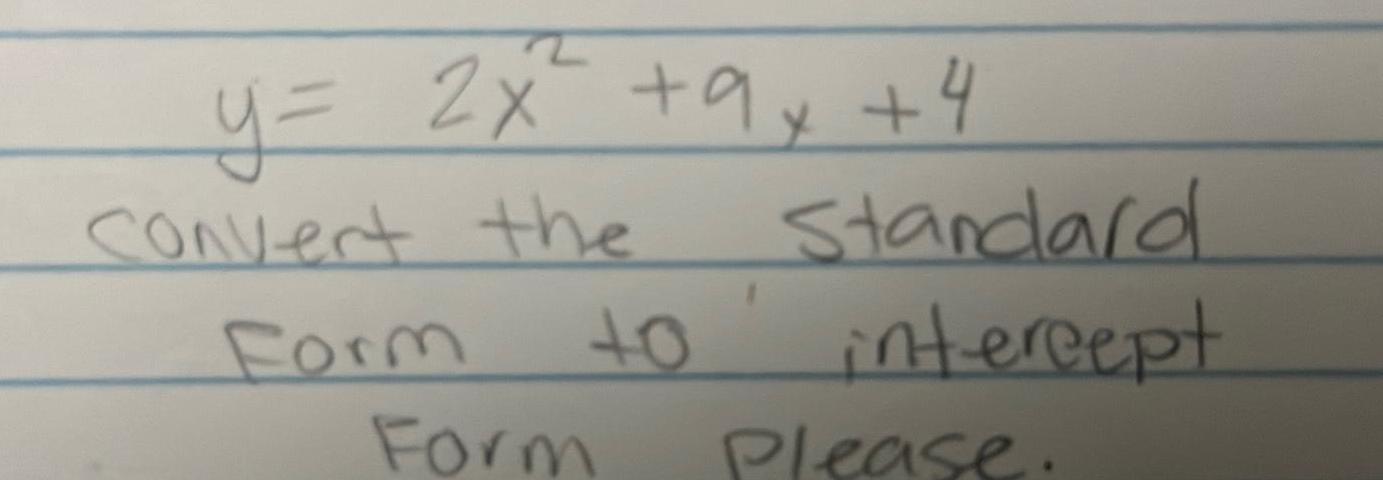 y= 2x² +9x +4
convert the standard
Form to intercept
Form please.